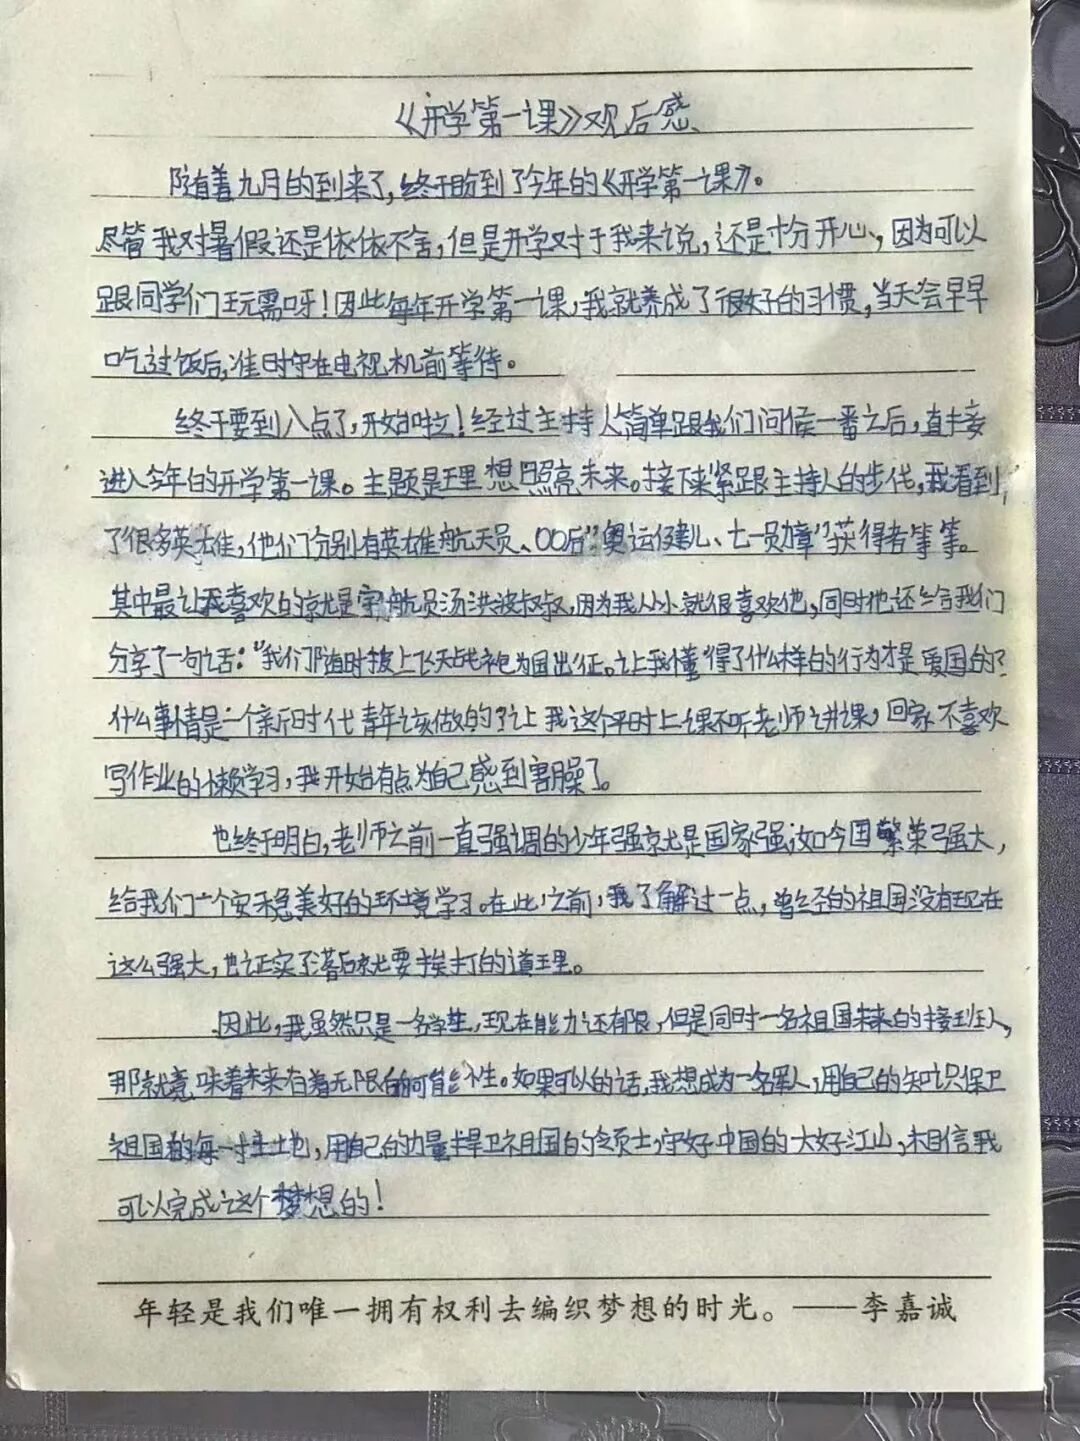 《开学第一课》观后感
随着九月的到来了,终于盼到了今年的《开学第一课》。
尽管我对暑假还是依依不舍,但是开学对于我来说,还是十分开心,因为可以
跟同学们玩需呀!因此每年开学第一课,我就养成了很好的习惯,当天会早早
吃过饭后,准时守在电视机前等待。
终于要到八点了,开始啦!经过主持人简单跟我们问候一番之后,直接
进入今年的开学第一课。主题是理想照亮未来。接下来紧跟主持人的步伐,我看到
了很多英雄,他们分别有英雄航天员、00后"奥运健儿、七一勋章"获得者等等。
其中最让我喜欢的就是宇航员汤洪波叔叔,因为我从小就很喜欢他,同时他还给我们
分享了一句话:"我们随时披上飞天战袍为国出征。让我懂得了什么样的行为才是爱国的?
什么事情是一个新时代青年该做的?让我这个平时上课不听老师讲课,回家不喜欢
写作业的懒学习,我开始有点为自己感到害臊了。
也终于明白,老师之前一直强调的少年强就是国家强,如今国繁荣强大,
给我们一个安稳美好的环境学习。在此之前,我了解过一点,曾经的祖国没有现在
这么强大,也证实了落后就要挨打的道理。
因此,我虽然只是一名学生,现在能力还有限,但是同时一名祖国未来的接班人,
那就意味着未来有着无限的可能性。如果可以的话,我想成为一名军人,用自己的知识保卫
祖国的每一寸土地,用自己的力量捍卫祖国的领土,守好中国的大好江山,相信我
可以完成这个梦想的!
年轻是我们唯一拥有权利去编织梦想的时光。——李嘉诚